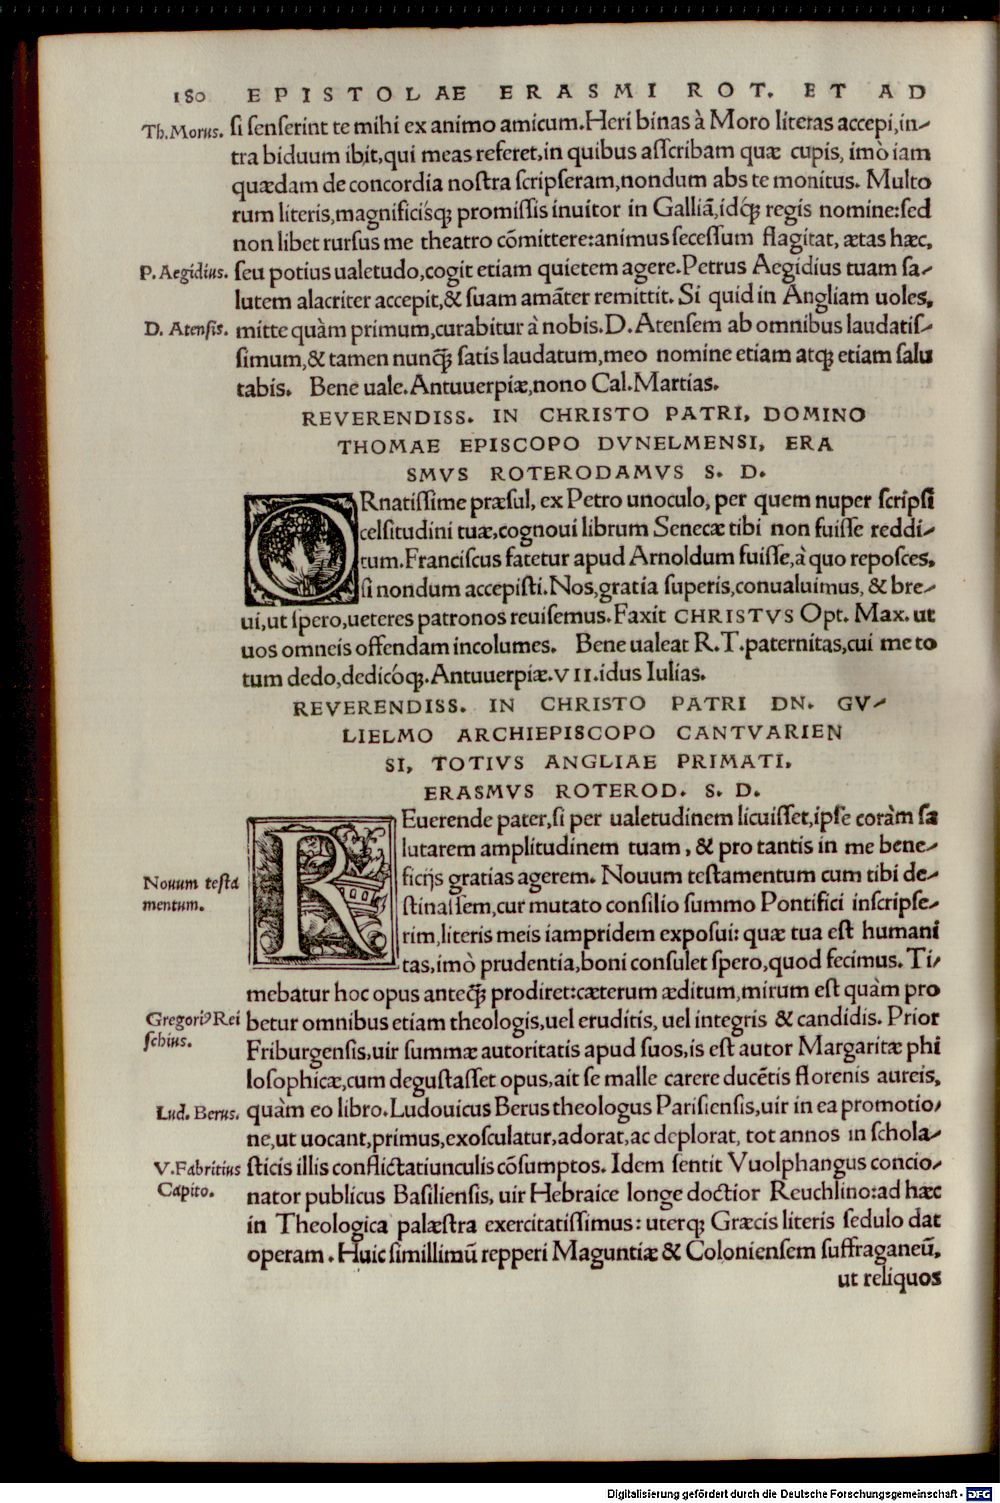 180 EPISTOLAE ERASMI ROT. ET AD
Th. Morus. si senserint te mihi ex animo amicum. Heri binas à Moro literas accepi, in-
tra biduum ibit, qui meas referet, in quibus asscribam quæ cupis, imò iam
quædam de concordia nostra scripseram, nondum abs te monitus. Multo
rum literis, magnificisq́; promissis inuitor in Galliā, idq́; regis nomine: sed
non libet rursus me theatro cōmittere: animus secessum flagitat, ætas hæc,
P. Aegidius. seu potius ualetudo, cogit etiam quietem agere. Petrus Aegidius tuam sa-
lutem alacriter accepit, & suam amāter remittit. Si quid in Angliam uoles,
D. Atensis. mitte quàm primum, curabitur à nobis. D. Atensem ab omnibus laudatis-
simum, & tamen nunq̄; satis laudatum, meo nomine etiam atq; etiam salu
tabis. Bene uale. Antuuerpiæ, nono Cal. Martias.
REVERENDISS. IN CHRISTO PATRI, DOMINO
THOMAE EPISCOPO DVNELMENSI, ERA
SMVS ROTERODAMVS S. D.
ORnatissime præsul, ex Petro unoculo, per quem nuper scripsi
celsitudini tuæ, cognoui librum Senecæ tibi non fuisse reddi-
tum. Franciscus fatetur apud Arnoldum fuisse, à quo reposces,
si nondum accepisti. Nos, gratia superis, conualuimus, & bre-
ui, ut spero, ueteres patronos reuisemus. Faxit CHRISTVS Opt. Max. ut
uos omneis offendam incolumes. Bene ualeat R. T. paternitas, cui me to
tum dedo, dedicóq;. Antuuerpiæ. VII. idus Iulias.
REVERENDISS. IN CHRISTO PATRI DN. GV-
LIELMO ARCHIEPISCOPO CANTVARIEN
SI, TOTIVS ANGLIAE PRIMATI,
ERASMVS ROTEROD. S. D.
REuerende pater, si per ualetudinem licuisset, ipse coràm sa
lutarem amplitudinem tuam, & pro tantis in me bene-
ficijs gratias agerem. Nouum testamentum cum tibi de-
Nouum testa
mentum.
stinassem, cur mutato consilio summo Pontifici inscripse-
rim, literis meis iampridem exposui: quæ tua est humani
tas, imò prudentia, boni consulet spero, quod fecimus. Ti-
mebatur hoc opus anteq̄; prodiret: cæterum æditum, mirum est quàm pro
Gregoriꝰ Rei
schius.
betur omnibus etiam theologis, uel eruditis, uel integris & candidis. Prior
Friburgensis, uir summæ autoritatis apud suos, is est autor Margaritæ phi
losophicæ, cum degustasset opus, ait se malle carere ducētis florenis aureis,
Lud. Berus. quàm eo libro. Ludouicus Berus theologus Parisiensis, uir in ea promotio-
ne, ut uocant, primus, exosculatur, adorat, ac deplorat, tot annos in schola-
V. Fabritius
Capito.
sticis illis conflictatiunculis cōsumptos. Idem sentit Vuolphangus concio-
nator publicus Basiliensis, uir Hebraice longe doctior Reuchlino: ad hæc
in Theologica palæstra exercitatissimus: uterq; Græcis literis sedulo dat
operam. Huic simillimū repperi Maguntiæ & Coloniensem suffraganeū,
ut reliquos
Digitalisierung gefördert durch die Deutsche Forschungsgemeinschaft - DFG